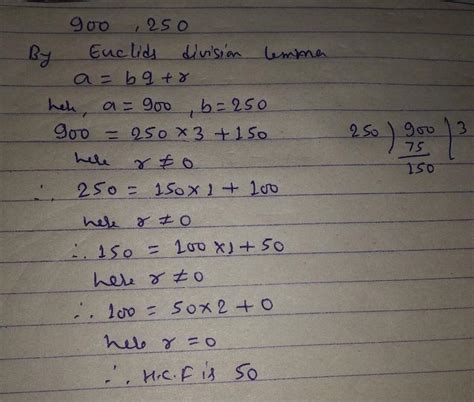 900 , 250
By Euclids division lemma
a = bq + r
here, a = 900 , b = 250
900 = 250 × 3 + 150
250 ) 900 ( 3
75
150
here r ≠ 0
∴ 250 = 150 × 1 + 100
here r ≠ 0
∴ 150 = 100 × 1 + 50
here r ≠ 0
∴ 100 = 50 × 2 + 0
here r = 0
∴ H.C.F is 50